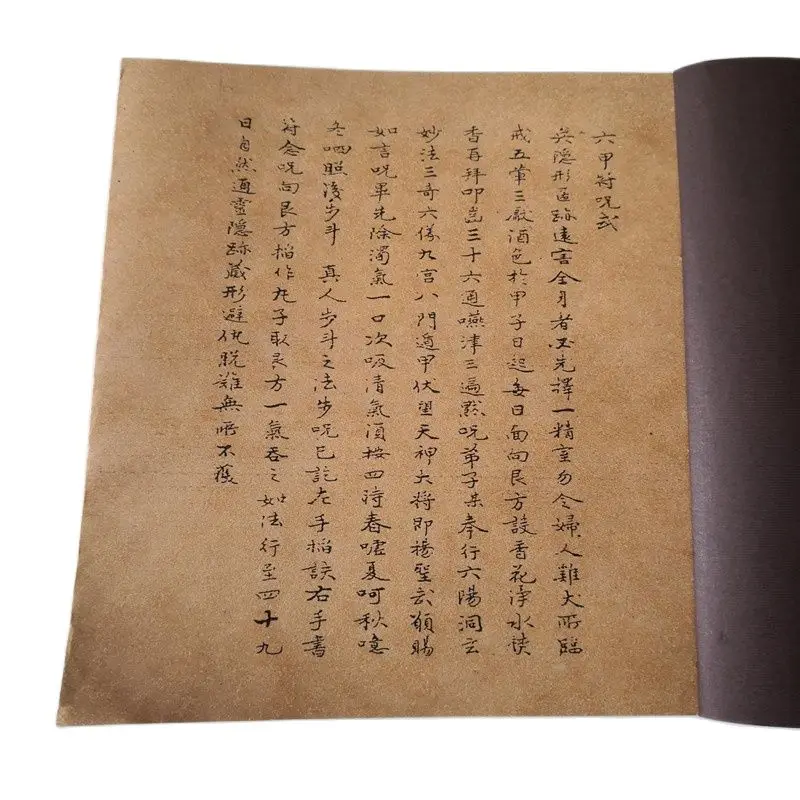 六甲符呪式
兵隐形匿跡遠害全身者必先擇一精室勿令婦人雞犬所臨
戒五葷三厭酒色於甲子日起每日面向艮方設香花淨水
香再拜叩齒三十六通嚥津三遍黙呪弟子某奉行六陽洞玄
妙法三奇六儀九宫八門遁甲伏望天神大将即揚聖武願賜
如言呪畢先除濁氣一口次吸清氣須按四時春嘘夏呵秋噫
冬呬照後步斗 真人步斗之法步呪已訖左手掐訣右手書
符念呪向艮方掐作丸子取艮方一氣吞之如法行至四十九
日自然通靈隱跡藏形避仇脱難無所不獲